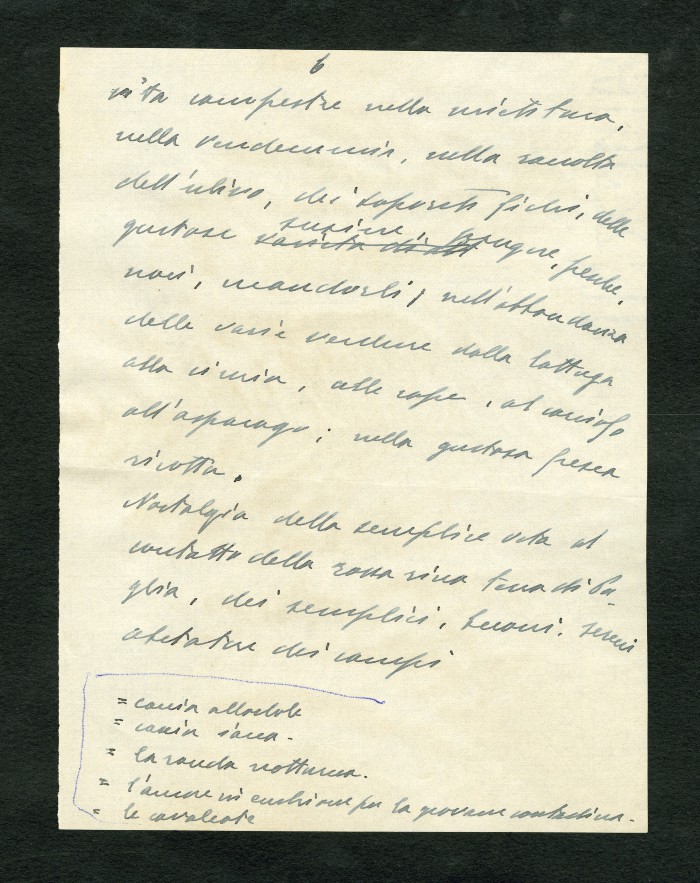 6
vita campestre nella mietitura,
nella vendemmia, nella raccolta
dell'ulivo, dei saporiti fichi, delle
gustose susine, prugne, pesche,
noci, mandorli; nell'abbondanza
delle varie verdure dalla lattuga
alla cimia, alle rape, al carciofo
all'asparago; nella gustosa fresca
ricotta.
Nostalgia della semplice vita al
contatto della rossa viva terra di Pu-
glia, dei semplici, buoni, sereni
abitatori dei campi
" caccia allodole
" caccia
" la ronda notturna.
" l'amore in embrione per la giovane contadina.
" le cavalcate